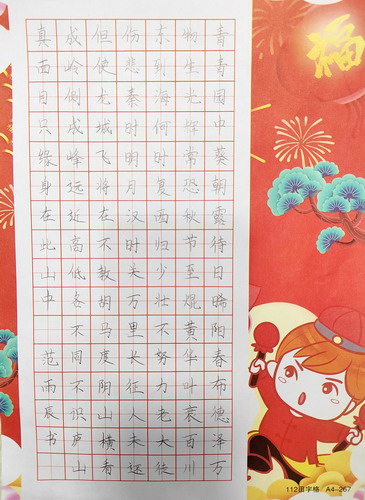 青青园中葵朝露待日晞阳春布德泽万
物生光辉常恐秋节至焜黄华叶衰百川
东到海何时复西归少壮不努力老大徒
伤悲秦时明月汉时关万里长征人未还
但使龙城飞将在不教胡马度阴山横看
成岭侧成峰远近高低各不同不识庐山
真面目只缘身在此山中 范雨辰书
福
112田字格/A4-267